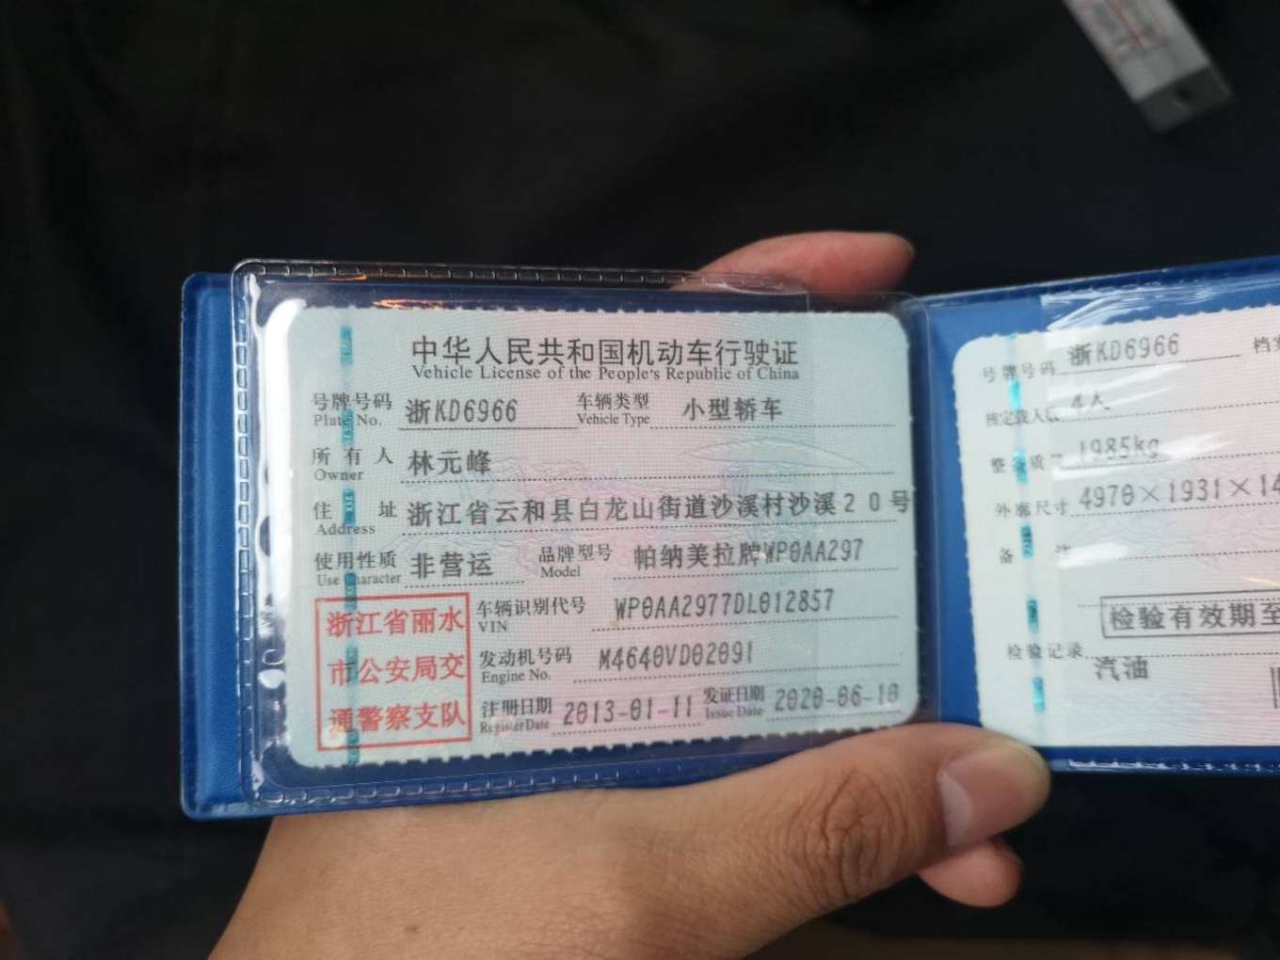 中华人民共和国机动车行驶证
Vehicle License of the People's Republic of China
号牌号码 浙KD6966 车辆类型 小型轿车
Plate No. Vehicle Type
所有人 林元峰
Owner
住址 浙江省云和县白龙山街道沙溪村沙溪20号
Address
使用性质 非营运 品牌型号 帕纳美拉牌WP0AA297
Use Character Model
浙江省丽水
市公安局交
通警察支队
车辆识别代号 WP0AA2977DL012857
VIN
发动机号码 M4640VD02091
Engine No.
注册日期 2013-01-11 发证日期 2020-06-10
Register Date Issue Date
号牌号码 浙KD6966 档
核定载人 4人
整 质 1985kg
外廓尺寸 4970×1931×14
备
检验有效期至
检验记录
汽油